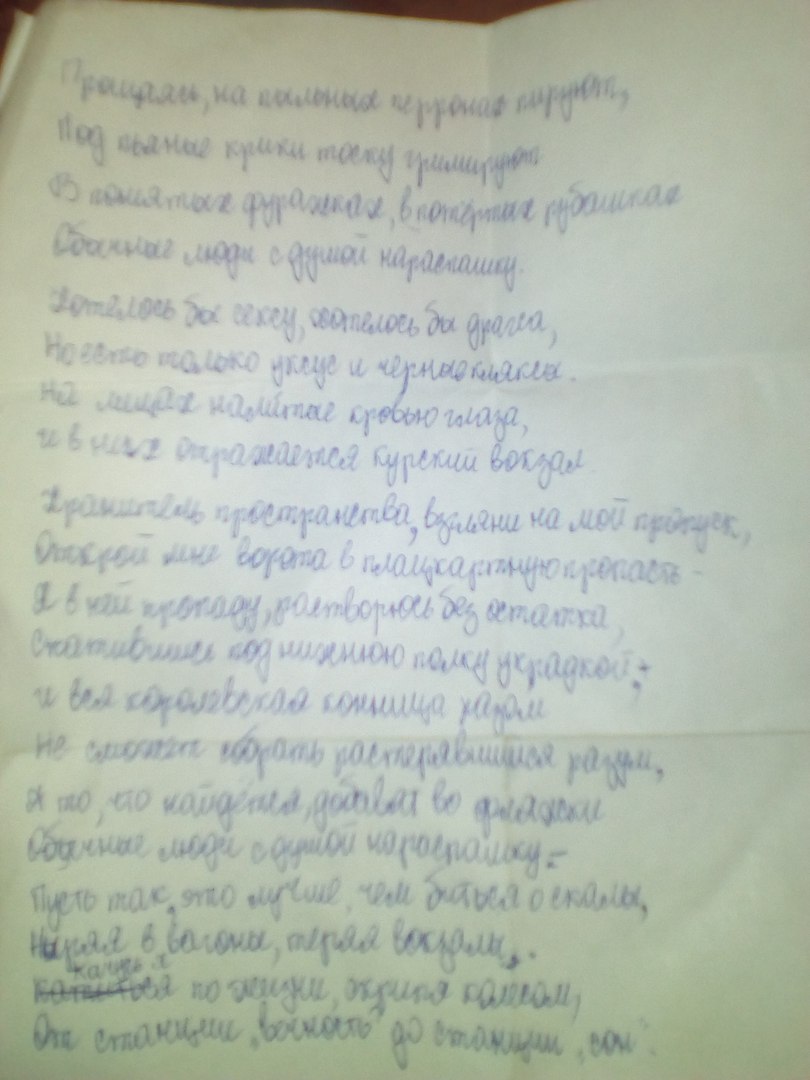 Прощаясь, на пыльных перронах пируют,
Под пьяные крики тоску гримируют
В помятых фуражках, в потёртых рубашках
Обычные люди с душой нараспашку.
Хотелось бы сексу, хотелось бы драгса,
Но есть только уксус и черные кляксы.
На лицах налитые кровью глаза,
и в них отражается Курский вокзал
Хранитель пространства, взгляни на мой пропуск,
Открой мне ворота в плацкартную пропасть -
Я в ней пропаду, растворюсь без остатка,
Скатившись под нижнюю полку украдкой;
и вся королевская конница разом
Не сможет собрать растерявшийся разум,
А то, что найдётся, добавят во фляжки
Обычные люди с душой нараспашку.-
Пусть так, это лучше, чем биться о скалы,
Ныряя в вагоны, теряя вокзалы,
качусь я
по жизни, скрипя колесом,
От станции „вечность" до станции „сон".